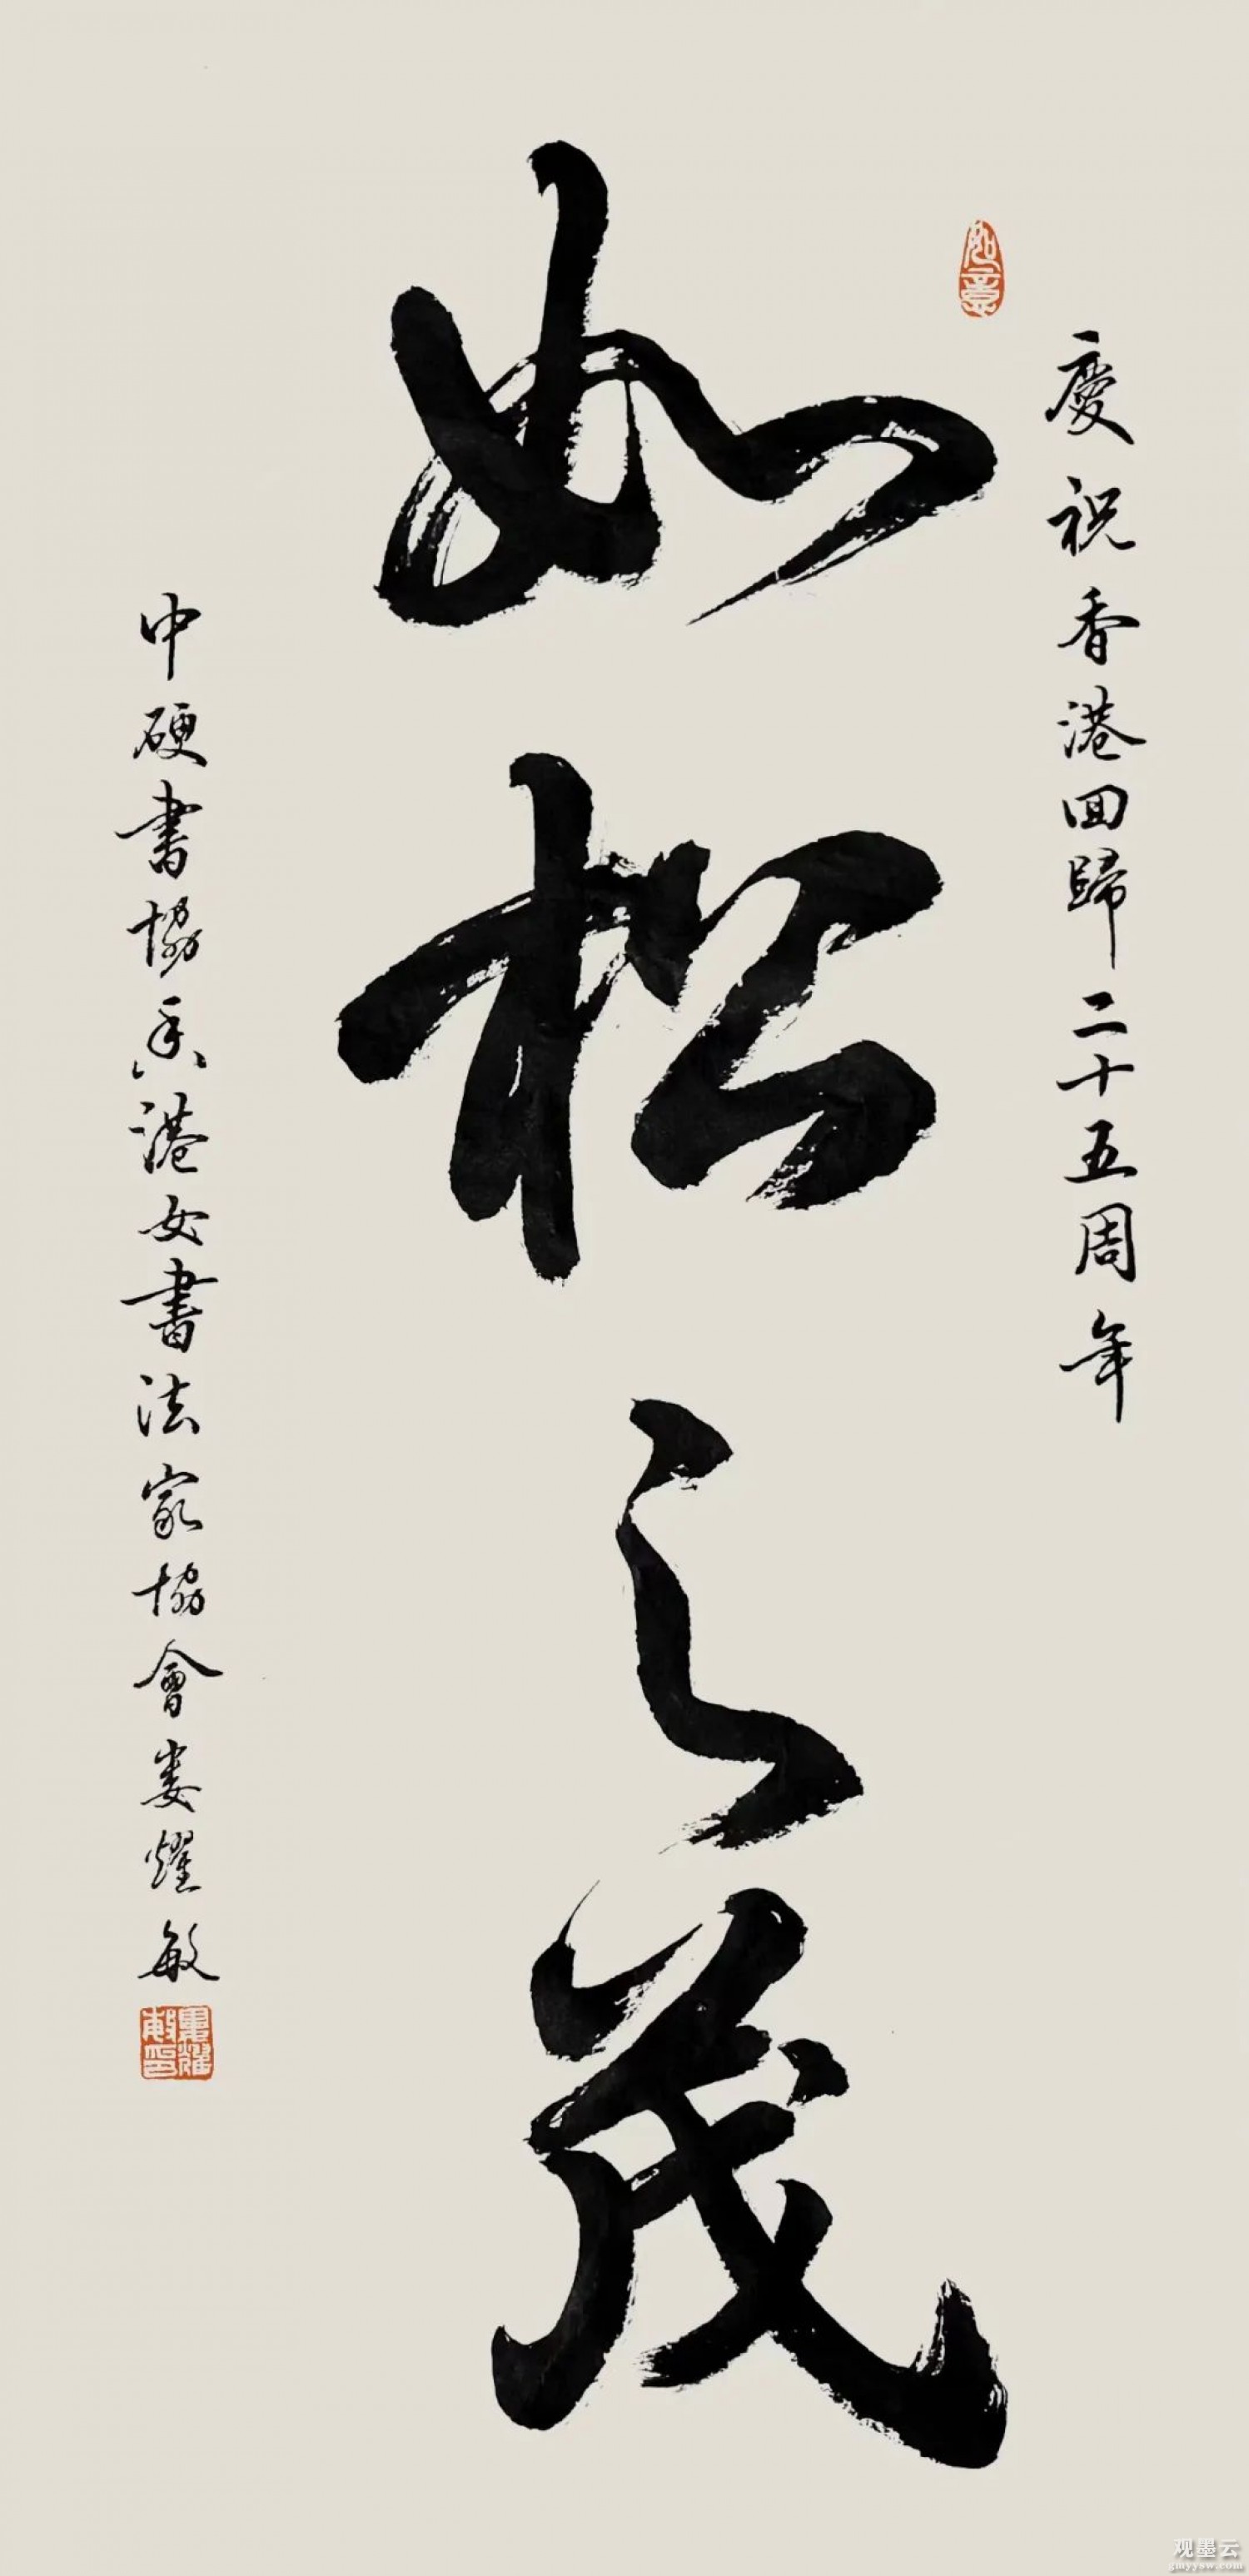 慶祝香港回歸二十五周年
如意
如松之茂
中硬書協香港女書法家協會婁耀敏
婁耀敏印
观墨云
gmyysw.com